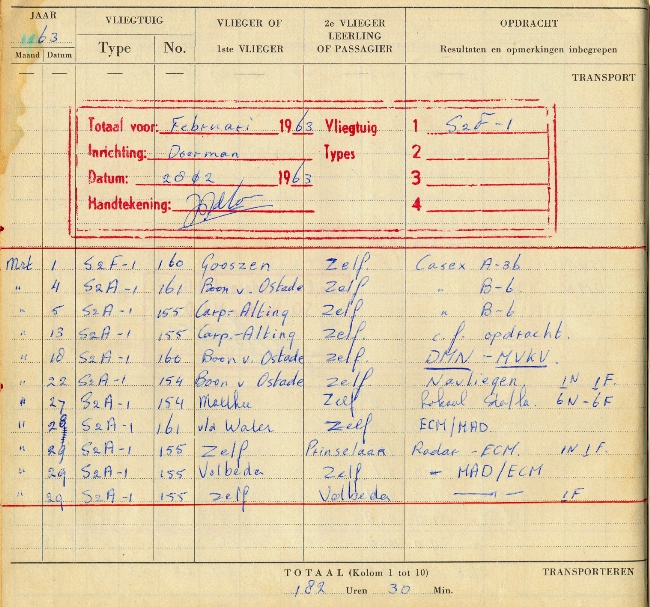 JAAR VLIEGTUIG VLIEGER OF 2e VLIEGER OPDRACHT
1963 LEERLING
Maand Datum Type No. 1ste VLIEGER OF PASSAGIER Resultaten en opmerkingen inbegrepen
— — — — — — TRANSPORT
Totaal voor: Februari 1963 Vliegtuig 1 S2F-1
Inrichting: Doorman Types 2
Datum: 28 02 1963 3
Handtekening: 4
Mrt 1 S2F-1 160 Gooszen Zelf Casex A-3b
" 4 S2A-1 161 Boon v. Ostade Zelf " B-6
" 5 S2A-1 155 Carp-Alting Zelf " B-6
" 13 S2A-1 155 Carp.-Alting Zelf c.f. opdracht.
" 18 S2A-1 160 Boon v. Ostade Zelf. DMN - MVKV.
" 22 S2A-1 154 Boon v Ostade Zelf Navliegen. 1N 1F.
" 27 S2A-1 154 Zelf Lokaal 6N-6F
" 28 S2A-1 161 v/d Water Zelf ECM/MAD.
" 29 S2A-1 155 Zelf Prinselaar Radar-ECM. 1N 1F.
" 29 S2A-1 155 Volbeda Zelf - MAD/ECM
" 29 S2A-1 155 Zelf Volbeda — 1F
TOTAAL (Kolom 1 tot 10) TRANSPORTEREN
182 Uren 30 Min.